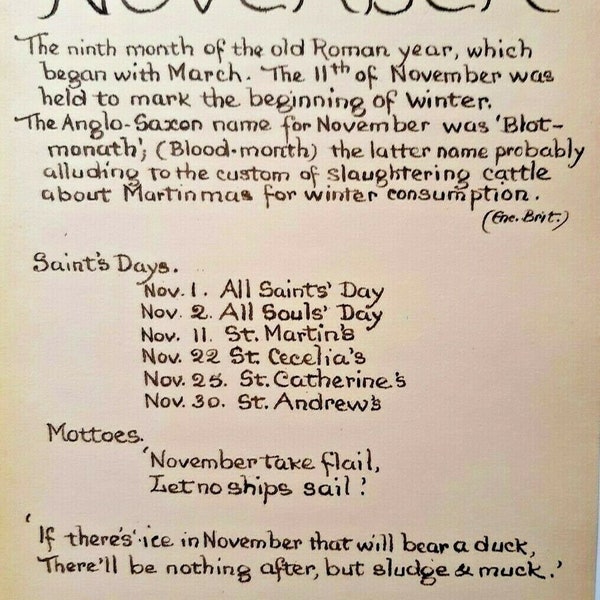 NOVEMBER
The ninth month of the old Roman year, which
began with March. The 11th of November was
held to mark the beginning of winter.
The Anglo-Saxon name for November was 'Blot-
monath'; (Blood-month) the latter name probably
alluding to the custom of slaughtering cattle
about Martinmas for winter consumption.
(Enc. Brit.)
Saint's Days.
Nov. 1. All Saints' Day
Nov. 2. All Souls' Day
Nov. 11. St. Martin's
Nov. 22 St. Cecelia's
Nov. 25. St. Catherine's
Nov. 30. St. Andrew's
Mottoes.
'November take flail,
Let no ships sail!
'If there's ice in November that will bear a duck,
There'll be nothing after, but sludge & muck.'